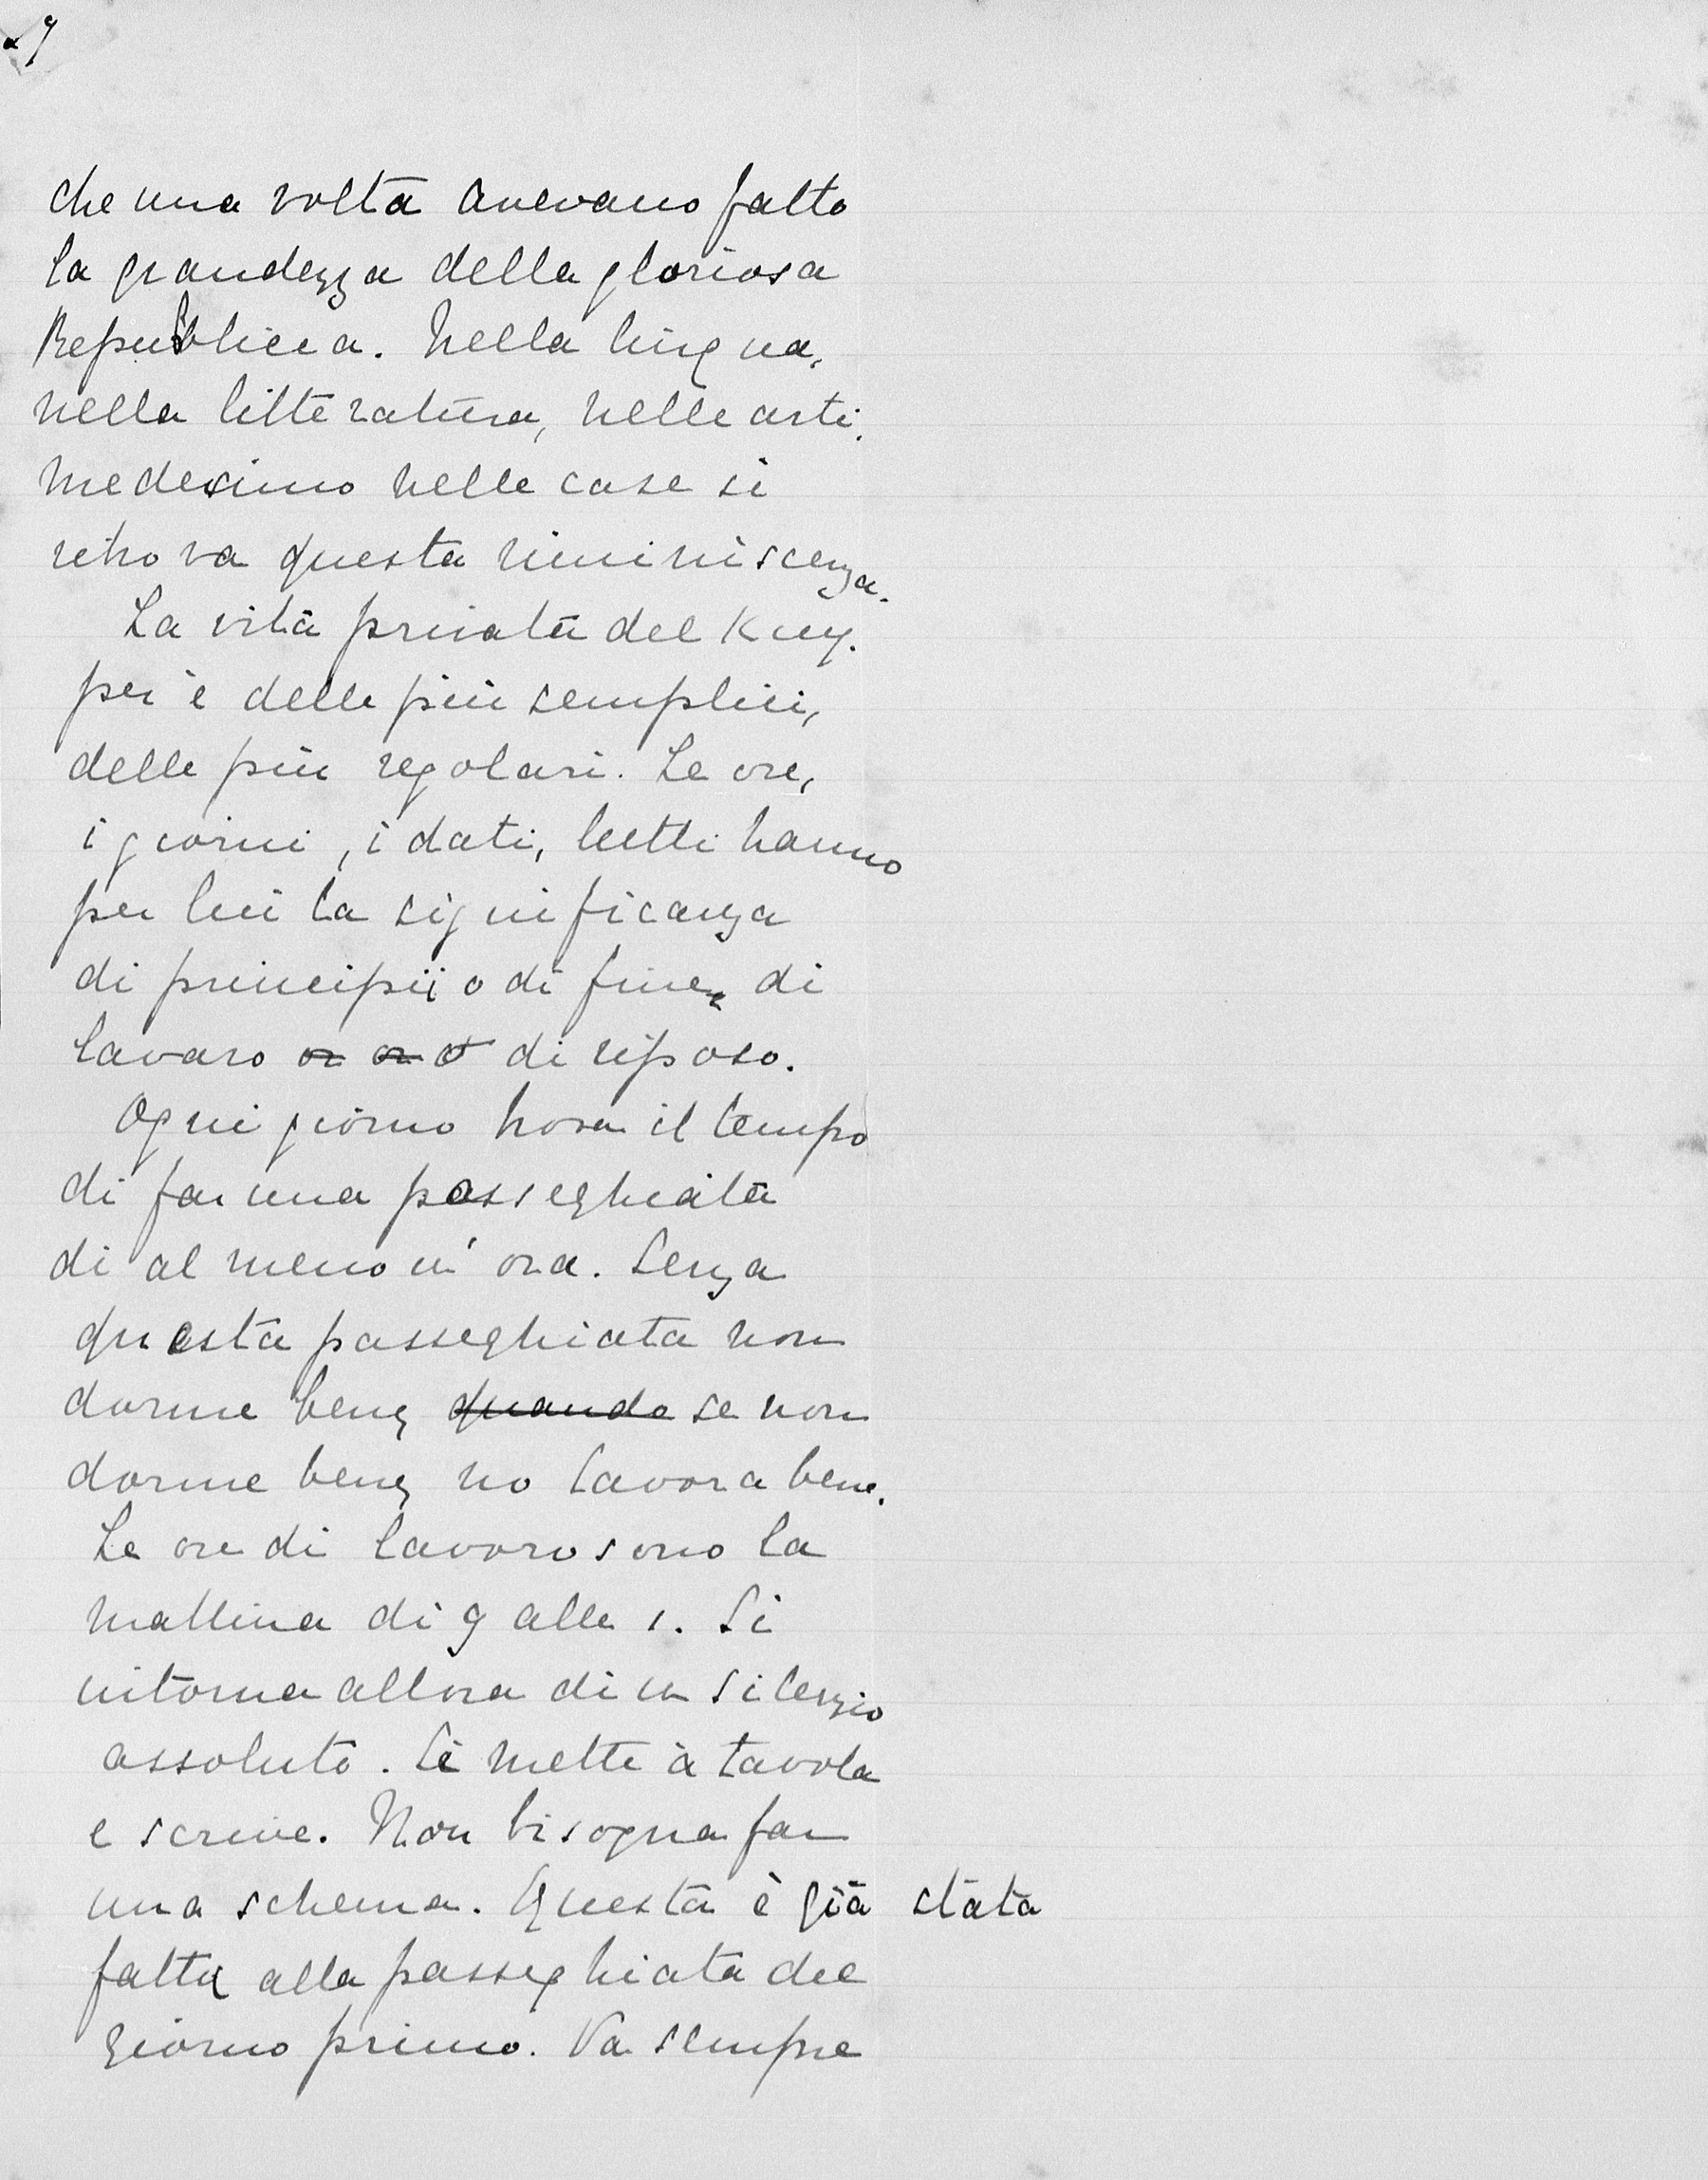 che una volta avevano fatto
la grandezza della gloriosa
Republica. Nella lingua,
nella litteratura, nelle arti,
medesimo nelle case si
retrova questa riminiscenza.
La vita privata del Kuy.
per è delle più semplici,
delle più regolari. Le ore,
i giorni, i dati, tutti hanno
per lui la significanza
di principii o di fine, di
lavaro or or o di riposo.
Ogni giorno trova il tempo
di far una passeghiata
di al meno un' ora. Senza
questa passeghiata non
dorme bene, quando se non
dorme bene, no lavora bene.
Le ore di lavoro sono la
mattina di 9 alle 1. Si
intorna allora di un silenzio
assoluto. Si mette à tavola
e scrive. Non bisogna far
una schema. Questa è già stata
fatta alla passeghiata del
giorno primo. Va sempre